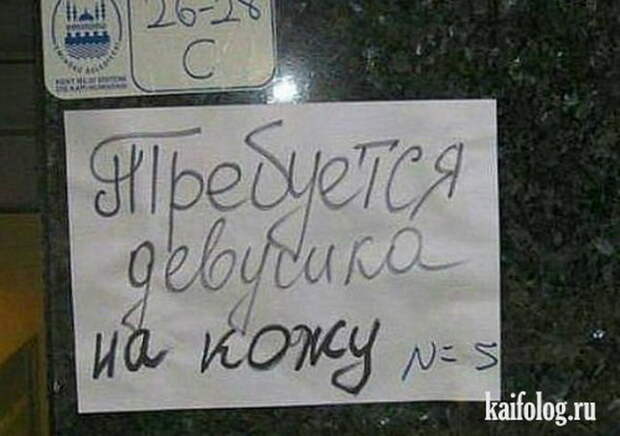 26-28
C
Требуется
девушка
на кожу N=5
kaifolog.ru